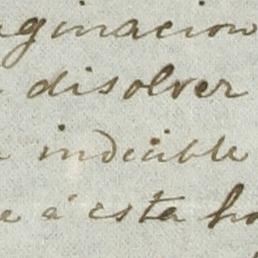 aginacion
disolver
indecible
e á esta ho